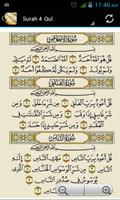 11:46 AM
Surah 4 Qul
سُورَةُ الإِخْلَاصِ
بِسْمِ اللَّهِ الرَّحْمَٰنِ الرَّحِيمِ
قُلْ هُوَ اللَّهُ أَحَدٌ اللَّهُ الصَّمَدُ لَمْ يَلِدْ
وَلَمْ يُولَدْ وَلَمْ يَكُن لَّهُ كُفُوًا أَحَدٌ
سُورَةُ الفَلَقِ
بِسْمِ اللَّهِ الرَّحْمَٰنِ الرَّحِيمِ
قُلْ أَعُوذُ بِرَبِّ الْفَلَقِ مِن شَرِّ مَا خَلَقَ وَمِن
شَرِّ غَاسِقٍ إِذَا وَقَبَ وَمِن شَرِّ النَّفَّاثَاتِ
فِي الْعُقَدِ وَمِن شَرِّ حَاسِدٍ إِذَا حَسَدَ
سُورَةُ النَّاسِ
بِسْمِ اللَّهِ الرَّحْمَٰنِ الرَّحِيمِ
قُلْ أَعُوذُ بِرَبِّ النَّاسِ مَلِكِ النَّاسِ
إِلَٰهِ النَّاسِ مِن شَرِّ الْوَسْوَاسِ الْخَنَّاسِ الَّذِي
يُوَسْوِسُ فِي صُدُورِ النَّاسِ